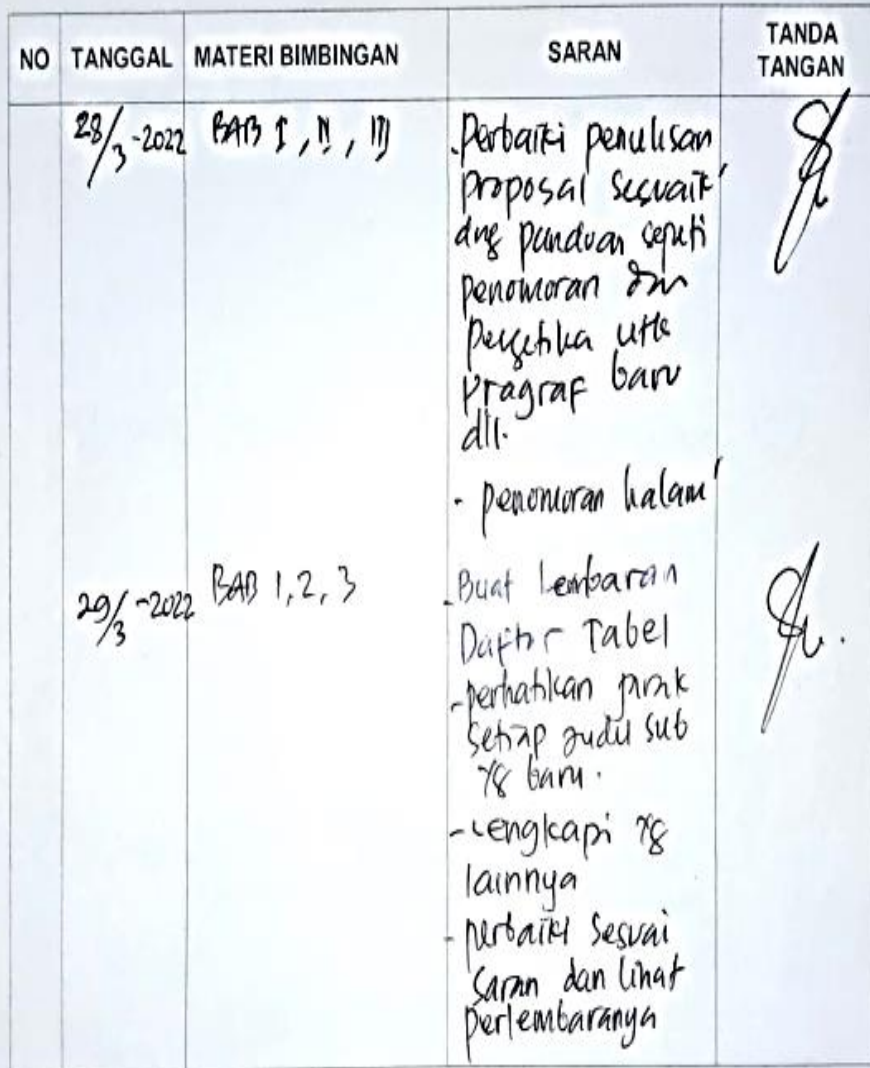 NO TANGGAL MATERI BIMBINGAN SARAN TANDA TANGAN
28/3-2022 BAB I, II, III
- Perbaiki penulisan
proposal sesuai
dng panduan seperti
penomoran dan
pengetika utk
pragraf baru
dll.
- penomoran halam
29/3-2022 BAB 1, 2, 3
- Buat lembaran
Daftar Tabel
- perhatikan jarak
setiap judul sub
yg baru.
- Lengkapi yg
lainnya
- perbaiki sesuai
saran dan lihat
perlembaranya